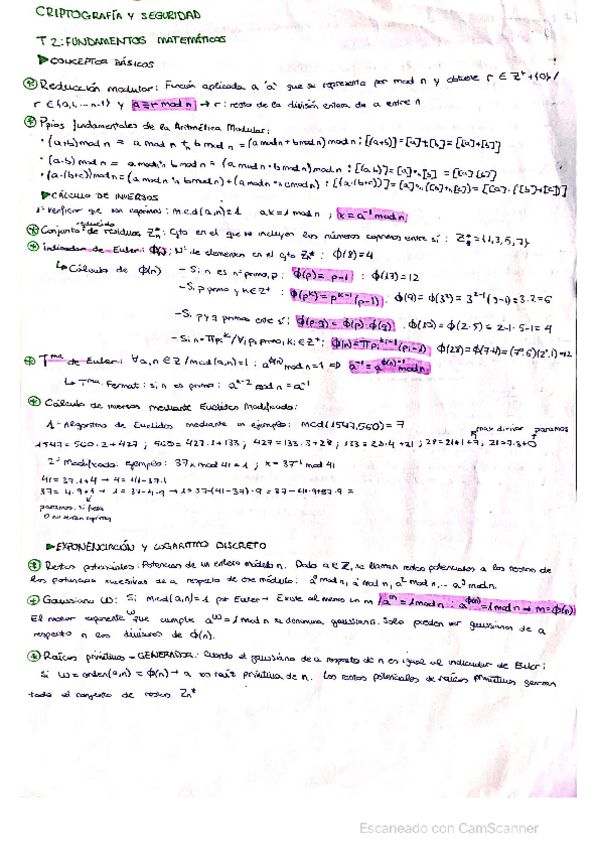 CRIPTOGRAFÍA Y SEGURIDAD
T2: FUNDAMENTOS MATEMÁTICOS
▶ CONCEPTOS BÁSICOS
Reducción modular: Función aplicada a "a" que se representa por mod n y obtiene r ∈ Z⁺ + {0} /
r ∈ {0,1, ... n-1} y a ≡ r mod n → r: resto de la división entera de a entre n
Ppios fundamentales de la Aritmética Modular:
· (a+b) mod n = a mod n +ₙ b mod n = (a mod n + b mod n) mod n ; [(a+b)] = [a] +ₙ [b] = [[a]+[b]]
· (a·b) mod n = a mod n ·ₙ b mod n = (a mod n · b mod n) mod n ; [(a·b)] = [a] ·ₙ [b] = [[a]·[b]]
▶ CÁLCULO DE INVERSOS
1º Verificar que son coprimos: m.c.d(a,n)=1 ax=1 mod n ; x = a⁻¹ mod n
Conjunto reducido de residuos Zₙ*: Cjto en el que se incluyen los números coprimos entre sí: Z₈* = {1,3,5,7}
Indicador de Euler: ϕ(n): Nº de elementos en el cjto Zₙ* : ϕ(8)=4
↳ Cálculo de ϕ(n) - Si n es nº primo, p: ϕ(p) = p-1 : ϕ(13)=12
- Si p primo y k∈Z⁺ : ϕ(pᵏ) = pᵏ⁻¹(p-1) . ϕ(9) = ϕ(3²) = 3²⁻¹(3-1) = 3·2=6
- Si p y q primos entre sí: ϕ(p·q) = ϕ(p)·ϕ(q) .
Tma de Euler: ∀a,n ∈ Z / mcd(a,n)=1 : a^ϕ(n) mod n = 1 ⇒ a⁻¹ = a^ϕ(n)-1 mod n
↳ Tma. Fermat: si n es primo: aⁿ⁻² mod n = a⁻¹
Cálculo de inversos mediante Euclides Modificado:
1- Algoritmo de Euclides mediante un ejemplo: mcd(1547,560) = 7
max divisor paramos
1547 = 560·2+427 ; 560 = 427·1+133 ; 427 = 133·3+28 ; 133 = 28·4+21 ; 28 = 21·1+7 ; 21 = 7·3+0
2º Modificado. ejemplo: 37x mod 41 = 1 ; x = 37⁻¹ mod 41
41 = 37·1+4 → 4 = 41-37·1
37 = 4·9+1 → 1 = 37-4·9 → 1 = 37-(41-37)·9 = 37-41·9+37·9 =
paramos. si fuera
0 no serían coprimos
▶ EXPONENCIACIÓN Y LOGARITMO DISCRETO
Restos potenciales: Potencias de un entero módulo n. Dado a∈Z, se llaman restos potenciales a los restos de
las potencias sucesivas de a respecto de ese módulo: a⁰ mod n, a¹ mod n, a² mod n, ...
Gaussiano ω: Si mcd(a,n)=1 por Euler → Existe al menos un m / aᵐ = 1 mod n : a^ϕ(n) = 1 mod n → m=ϕ(n)
El menor exponente ω que cumple a^ω = 1 mod n se denomina gaussiano. Solo pueden ser gaussianos de a
respecto n los divisores de ϕ(n).
Raíces primitivas - GENERADOR: Cuando el gaussiano de a respecto de n es igual al indicador de Euler:
Si ω = orden(a,n) = ϕ(n) → a es raíz primitiva de n. Los restos potenciales de raíces primitivas generan
todo el conjunto de restos Zₙ*
Escaneado con CamScanner